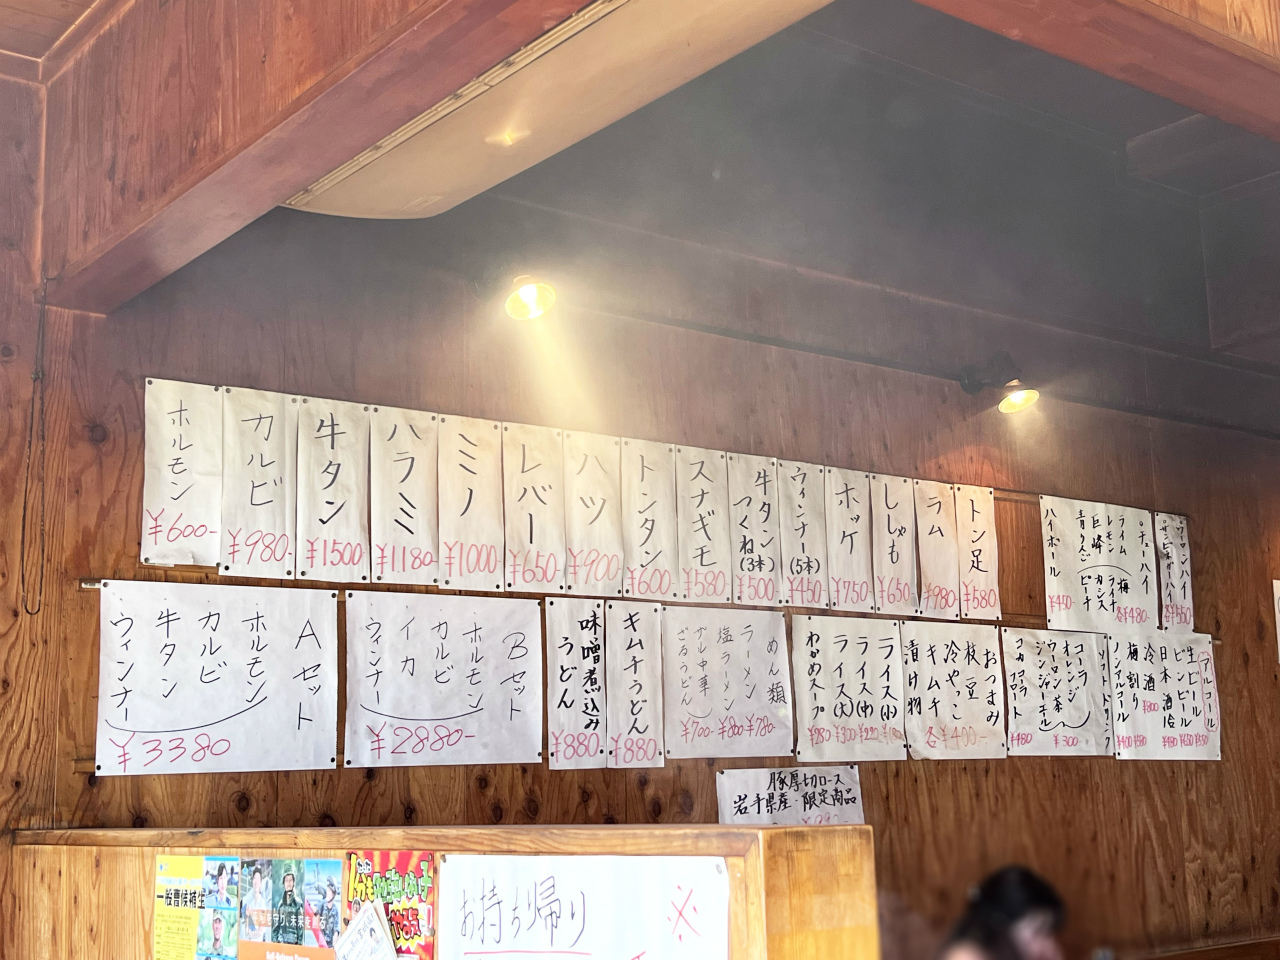 ホルモン
¥600-
カルビ
¥980-
牛タン
¥1500
ハラミ
¥1180
ミノ
¥1000
レバー
¥650
ハツ
¥900
トンタン
¥600-
スナギモ
¥580
牛タン
つくね(3本)
¥500
ウィンナー(5本)
¥450
ホッケ
¥750
ししゃも
¥650
ラム
¥980
トン足
¥580
Aセット
ホルモン
カルビ
牛タン
ウィンナー
¥3380
Bセット
ホルモン
カルビ
イカ
ウィンナー
¥2880-
味噌煮込み
うどん
¥880-
キムチうどん
¥880
めん類
ラーメン
塩ラーメン
ザル中華
ざるうどん
¥700- ¥800 ¥780-
ライス(小)
ライス(中)
ライス(大)
わかめスープ
おつまみ
枝豆
冷やっこ
キムチ
漬け物
各¥400-
ソフトドリンク
コーラ
オレンジ
ウーロン茶
ジンジャーエール
¥300
コカコーラ
フロート
¥480
アルコール
生ビール
ビンビール
日本酒
冷酒
梅割り
ノンアルコール
ハイボール
¥450
チューハイ
ライム
レモン
巨峰
青りんご
梅
ライチ
カシス
ピーチ
各¥480-
ウーロンハイ
各¥550
豚厚切ロース
岩手県産・限定商品
お持ち帰り
※
一般曹候補生